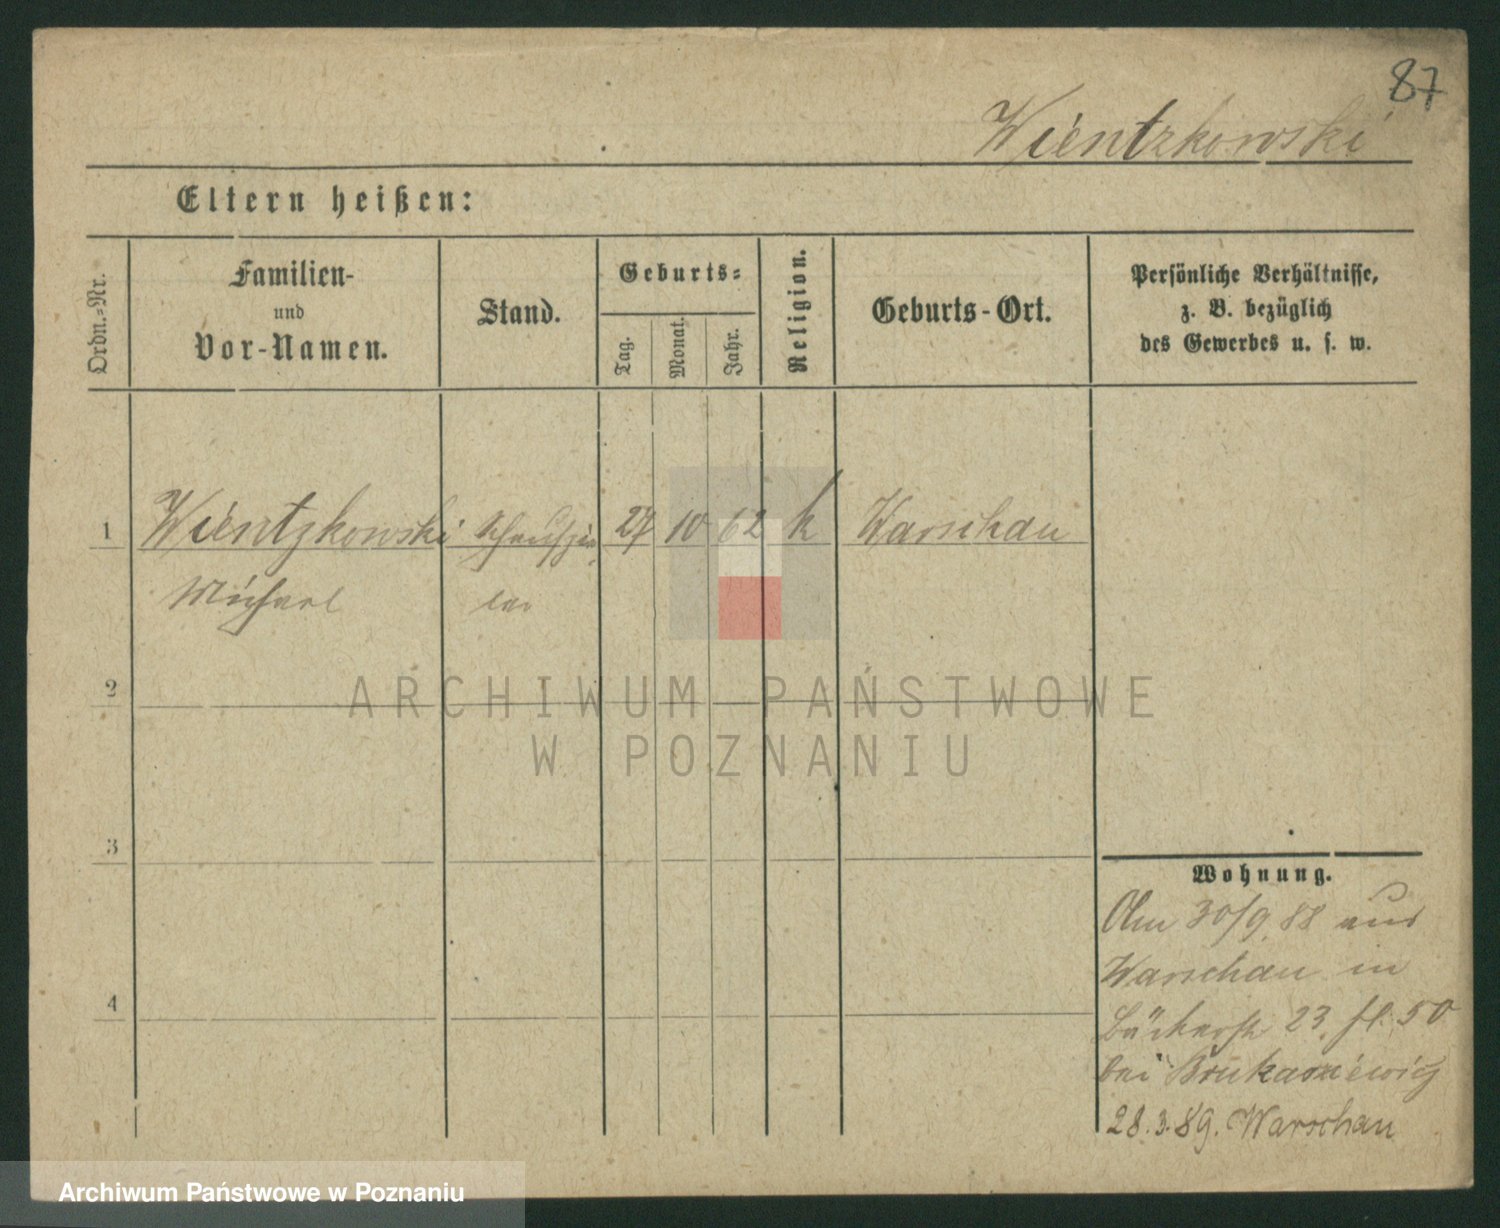 87
Wientzkowski
Eltern heißen:
Ordn.-Nr.
Familien-
und
Vor-Namen.
Stand.
Geburts-
Tag.
Monat.
Jahr.
Religion.
Geburts-Ort.
Persönliche Verhältnisse,
z. B. bezüglich
des Gewerbes u. s. w.
1 Wientzkowski Schauspie 27 10 62 k Warschau
Michael ler
2
ARCHIWUM PAŃSTWOWE
W POZNANIU
3
4
Wohnung.
30/9. 88 aus
Warschau in
Bäckerstr 23. 50
bei
28.3.89. Warschau
Archiwum Państwowe w Poznaniu